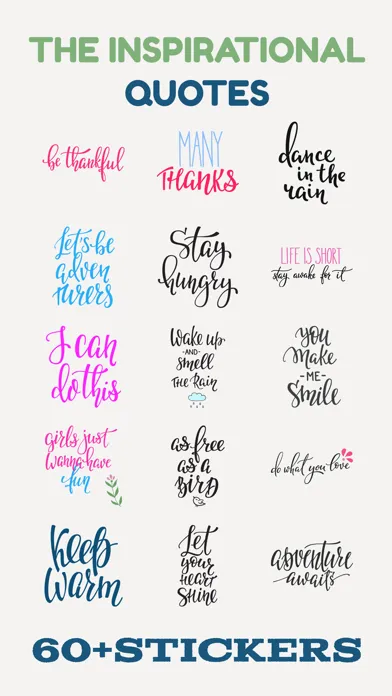 THE INSPIRATIONAL
QUOTES
be thankful
MANY
THANKS
dance
in the
rain
Let's be
adven
turers
Stay
hungry
LIFE IS SHORT
stay awake for it
I can
do this
Wake up
-AND-
smell
THE RAIN
you
make
-ME-
Smile
girls just
wanna have
fun
as free
as a
BIRD
do what you love
keep
warm
Let
your
heart
Shine
adventure
awaits
60+STICKERS